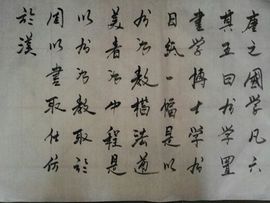 唐之國學凡六
其五曰书學置
書學博士學书
日紙一幅是以
书為教楷法遒
美者為中程是
以书為教取於
用以書取仕仿
於漢